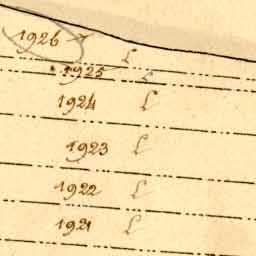 1926
1925
1924
1923
1922
1921